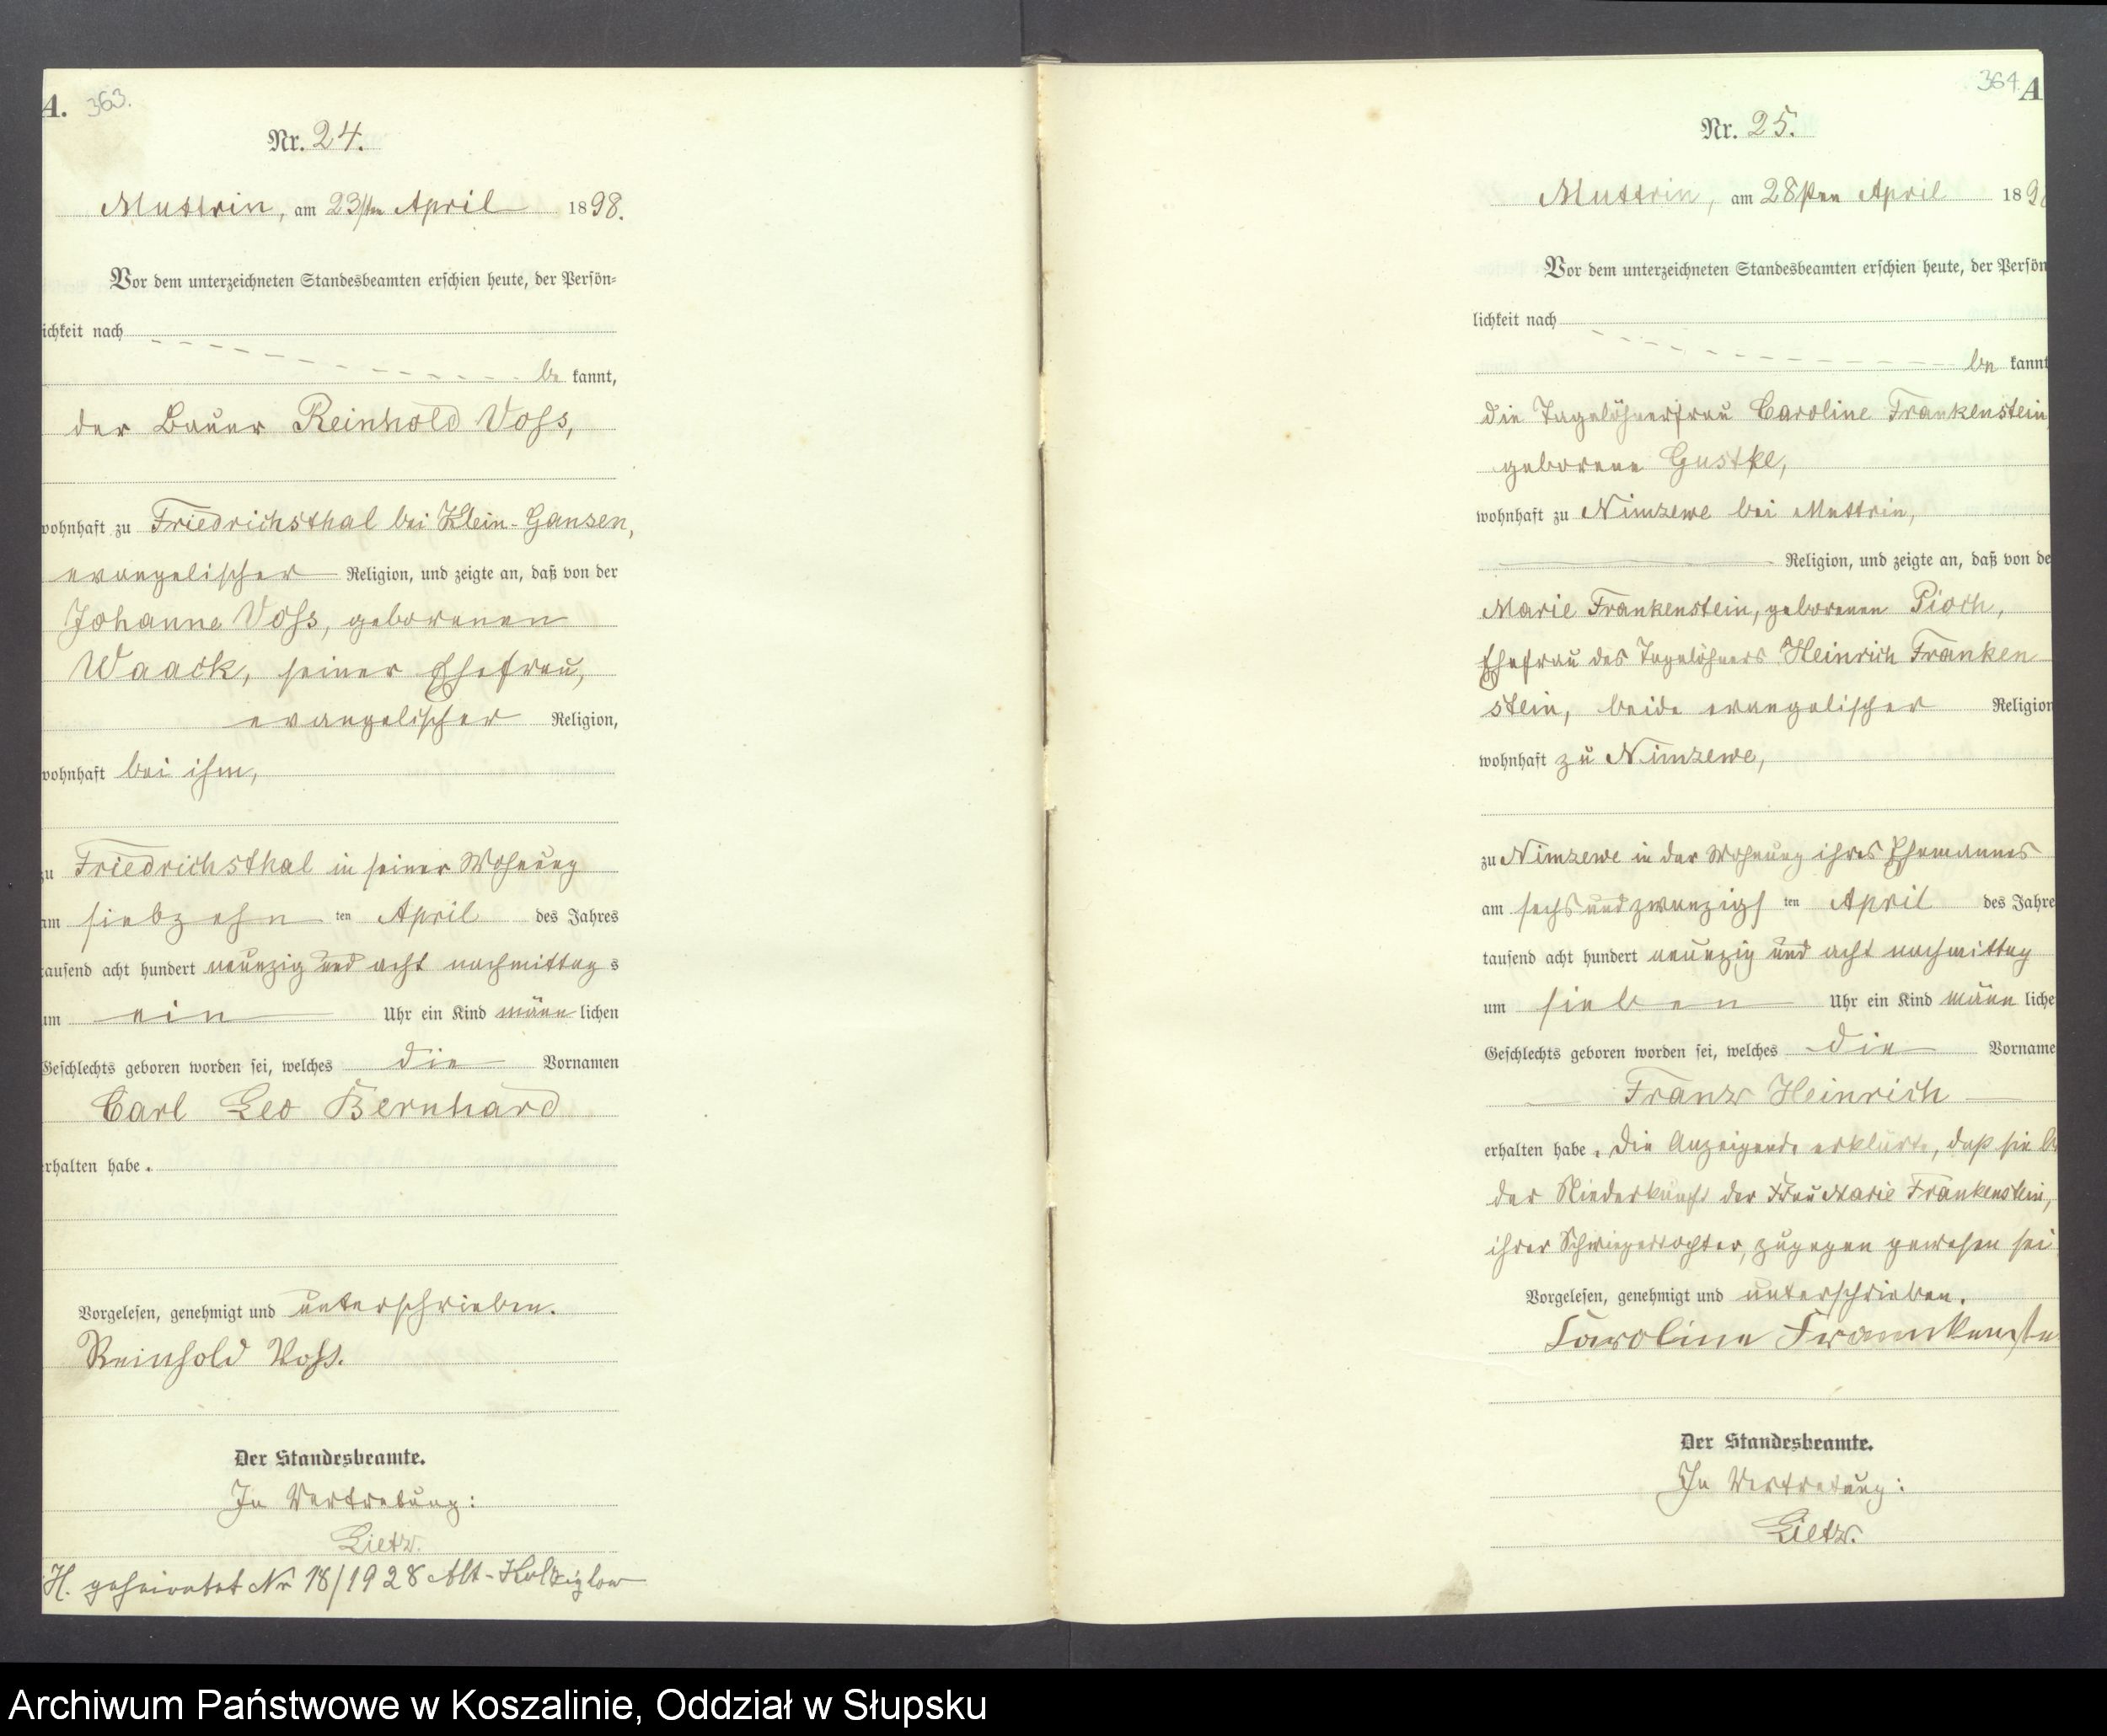 A. 363.
Nr. 24.
Muttrin, am 23sten April 1898.
Vor dem unterzeichneten Standesbeamten erschien heute, der Persön-
lichkeit nach
be kannt,
der Bauer Reinhold Voss,
wohnhaft zu Friedrichsthal bei Klein-Gansen,
evangelischer Religion, und zeigte an, daß von der
Johanne Voss, geborenen
Waack, seiner Ehefrau,
evangelischer Religion,
wohnhaft bei ihm,
zu Friedrichsthal in seiner Wohnung
am siebzehn ten April des Jahres
tausend acht hundert neunzig und acht nachmittag s
um ein Uhr ein Kind männ lichen
Geschlechts geboren worden sei, welches die Vornamen
Carl Leo Bernhard
erhalten habe.
Vorgelesen, genehmigt und unterschrieben.
Reinhold Voss.
Der Standesbeamte.
In Vertretung:
Lietz.
H. geheiratet Nr 18/1928 Alt-Kolziglow
364. A
Nr. 25.
Muttrin, am 28sten April 189
Vor dem unterzeichneten Standesbeamten erschien heute, der Persön
lichkeit nach
be kannt
die Tagelöhnerfrau Caroline Frankenstein,
geborene Gustke,
wohnhaft zu Nimzewe bei Muttrin,
Religion, und zeigte an, daß von de
Marie Frankenstein, geborenen Pioch,
Ehefrau des Tagelöhners Heinrich Franken
stein, beide evangelischer Religion
wohnhaft zu Nimzewe,
zu Nimzewe in der Wohnung ihres Ehemannes
am sechsundzwanzigs ten April des Jahre
tausend acht hundert neunzig und acht nachmittag
um sieben Uhr ein Kind männ liche
Geschlechts geboren worden sei, welches die Vorname
Franz Heinrich
erhalten habe. Die Anzeigende erklärte, daß sie b
der Niederkunft der Frau Marie Frankenstein,
ihrer Schwiegertochter, zugegen gewesen sei
Vorgelesen, genehmigt und unterschrieben.
Caroline Frannkenste
Der Standesbeamte.
In Vertretung:
Lietz.
Archiwum Państwowe w Koszalinie, Oddział w Słupsku